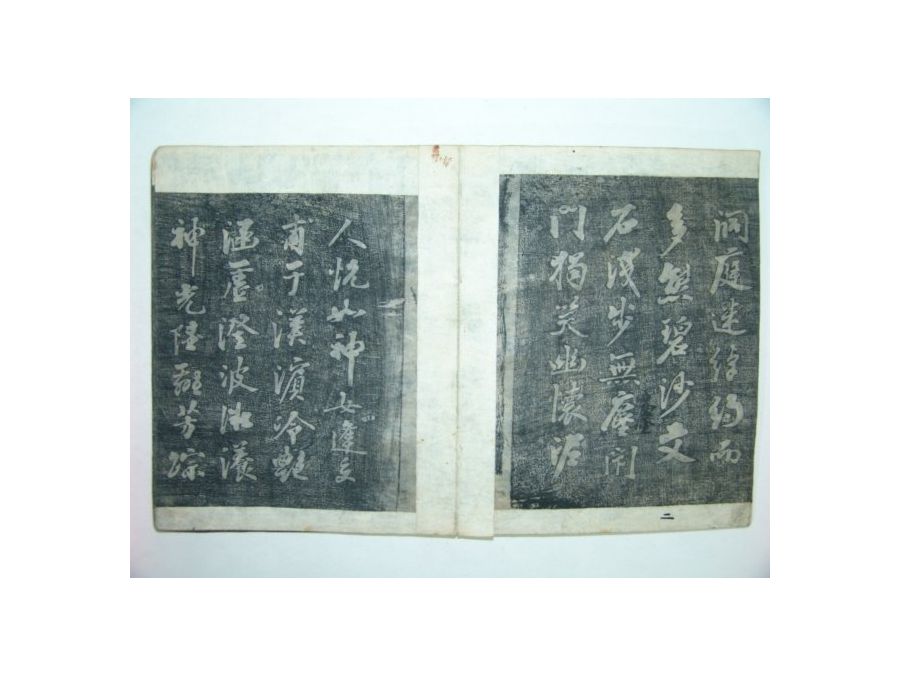 洞庭迷綽約而
多態碧沙文
石淺步無塵
門獨笑幽懷
人恍如神女逢交
甫于漢濱冷艷
涵虛澄波微漾
神光陸離芳踪
二